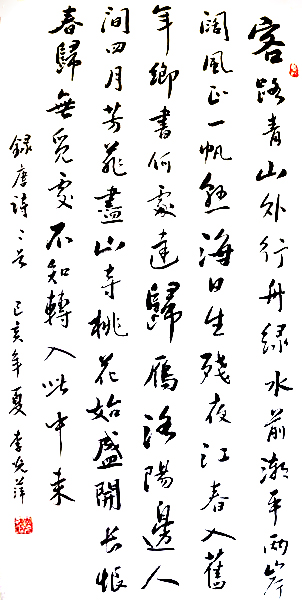 客路青山外行舟绿水前潮平兩岸
闊風正一帆懸海日生残夜江春入舊
年鄉書何處達歸雁洛陽邊人
間四月芳菲盡山寺桃花始盛開長恨
春歸無覓處不知轉入此中来
録唐詩二首 己亥年夏 李萍